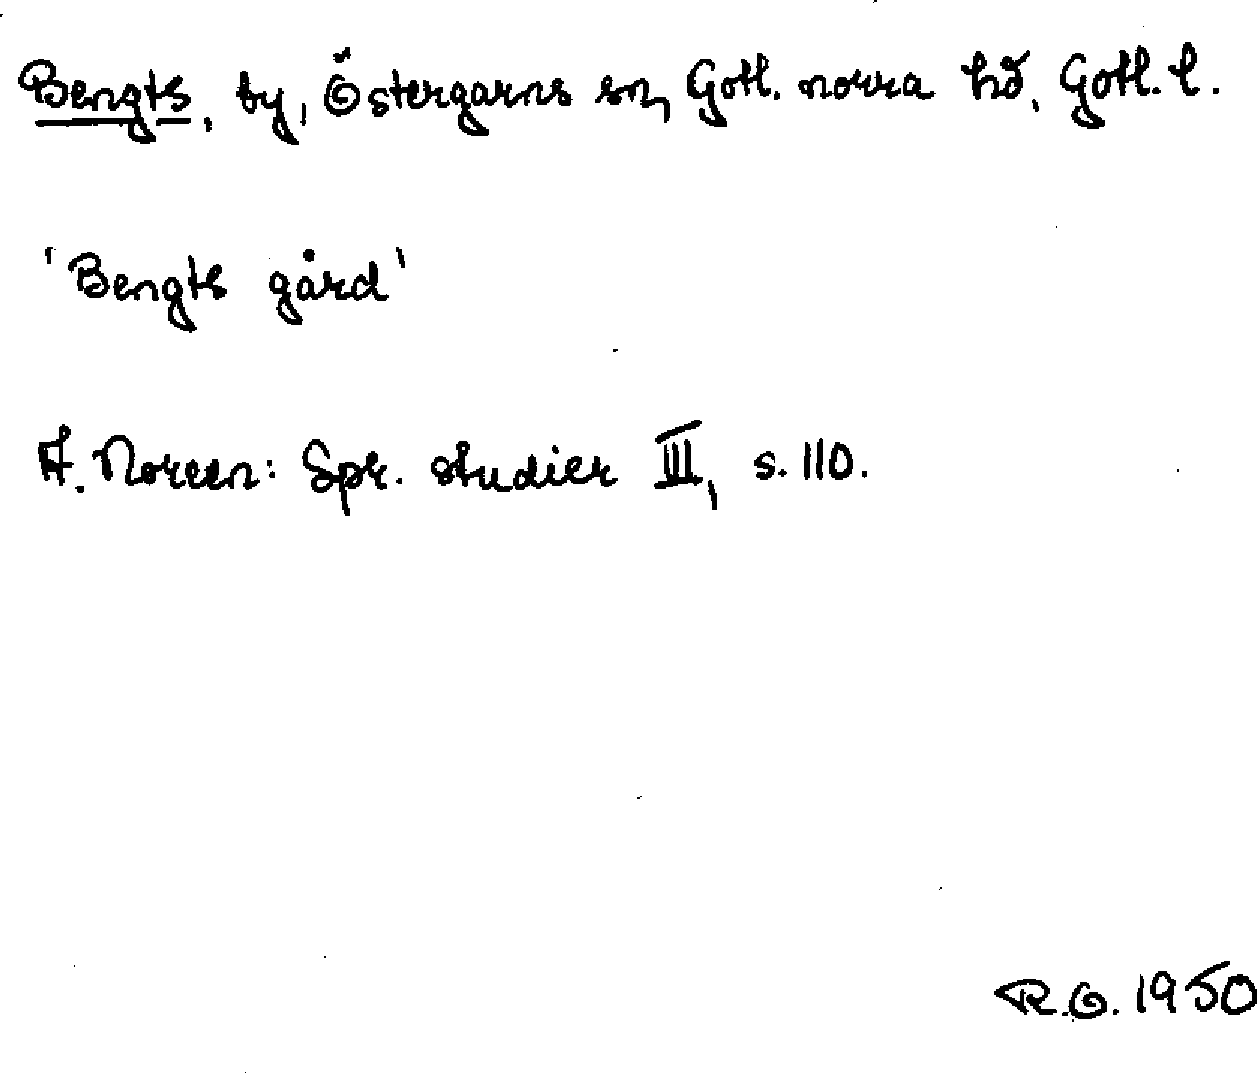 Bengts, by, Östergarns sn, Gotl. norra hd, Gotl. l.
'Bengts gård'
A. Noreen: Spr. studier III, s. 110.
R.O. 1950